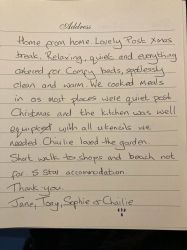 Address
Home from home. Lovely Post Xmas
break. Relaxing, quiet and everything
catered for Comfy beds, spotlessly
clean and warm. We cooked meals
in as most places were quiet post
Christmas and the kitchen was well
equipped with all utensils we
needed Charlie loved the garden
Short walk to shops and beach not
for 5 Star accommodation
Thank you.
Jane, Tony, Sophie & Charlie